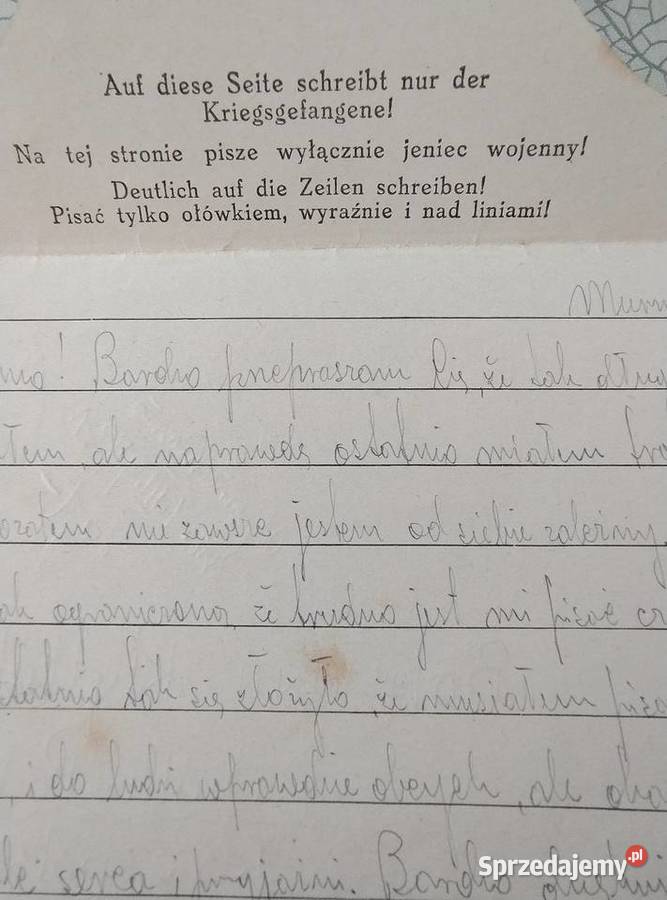 Auf diese Seite schreibt nur der
Kriegsgefangene!
Na tej stronie pisze wyłącznie jeniec wojenny!
Deutlich auf die Zeilen schreiben!
Pisać tylko ołówkiem, wyraźnie i nad liniami!
Murn
mo! Bardzo przepraszam Cię, że tak dług
łem, ale naprawdę ostatnio miałem
ozatem nie zawsze jestem od siebie zależny,
ak ograniczona, że trudno jest mi pisać cz
statnio tak się złożyło, że musiałem pisa
, i do ludzi wprawdzie obcych, ale oka
serca i przyjaźni. Bardzo
Sprzedajemy.pl